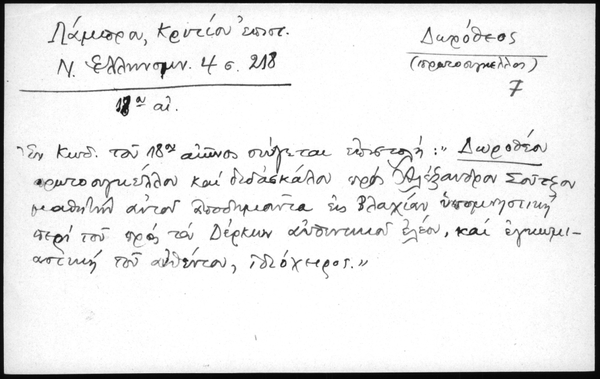 Λάμπρου, Κρητικὸν ἐπιστ.
Ν. Ἑλληνομν. 4 σ. 218
18ου αἰ.
Δωρόθεος
(πρωτοσύγκελλος)
7
Ἐν Κωδ. τοῦ 18ου αἰῶνος σώζεται ἐπιστολή: "Δωροθέου
πρωτοσυγκέλλου καὶ διδασκάλου πρὸς Ἀλέξανδρον Σοῦτζον
μαθητὴν αὐτοῦ ἀποδημοῦντα εἰς Βλαχίαν ὑπομνηστικὴ
περὶ τοῦ πρὸς τὸν Δέρκων αὐθεντικοῦ ἐλέου, καὶ ἐγκωμι-
αστικὴ τοῦ αὐθέντου, ἰδιόχειρος."